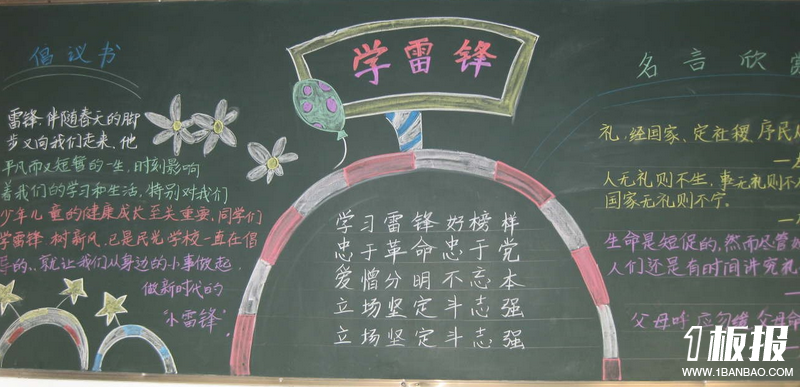 倡议书
雷锋,伴随春天的脚
步又向我们走来、他
平凡而又短暂的一生,时刻影响
着我们的学习和生活,特别对我们
少年儿童的健康成长至关重要,同学们
学雷锋 树新风,已是民光学校一直在倡
导的,就让我们从身边的小事做起,
做新时代的
“小雷锋”
学雷锋
学习雷锋好榜样
忠于革命忠于党
爱憎分明不忘本
立场坚定斗志强
立场坚定斗志强
名言欣赏
礼,经国家、定社稷,序民
人无礼则不生,事无礼则不
国家无礼则不宁。
生命是短促的,然而尽管
人们还是有时间讲究礼
父母呼 应勿缓 父母命
1板报
WWW.1BANBAO.COM